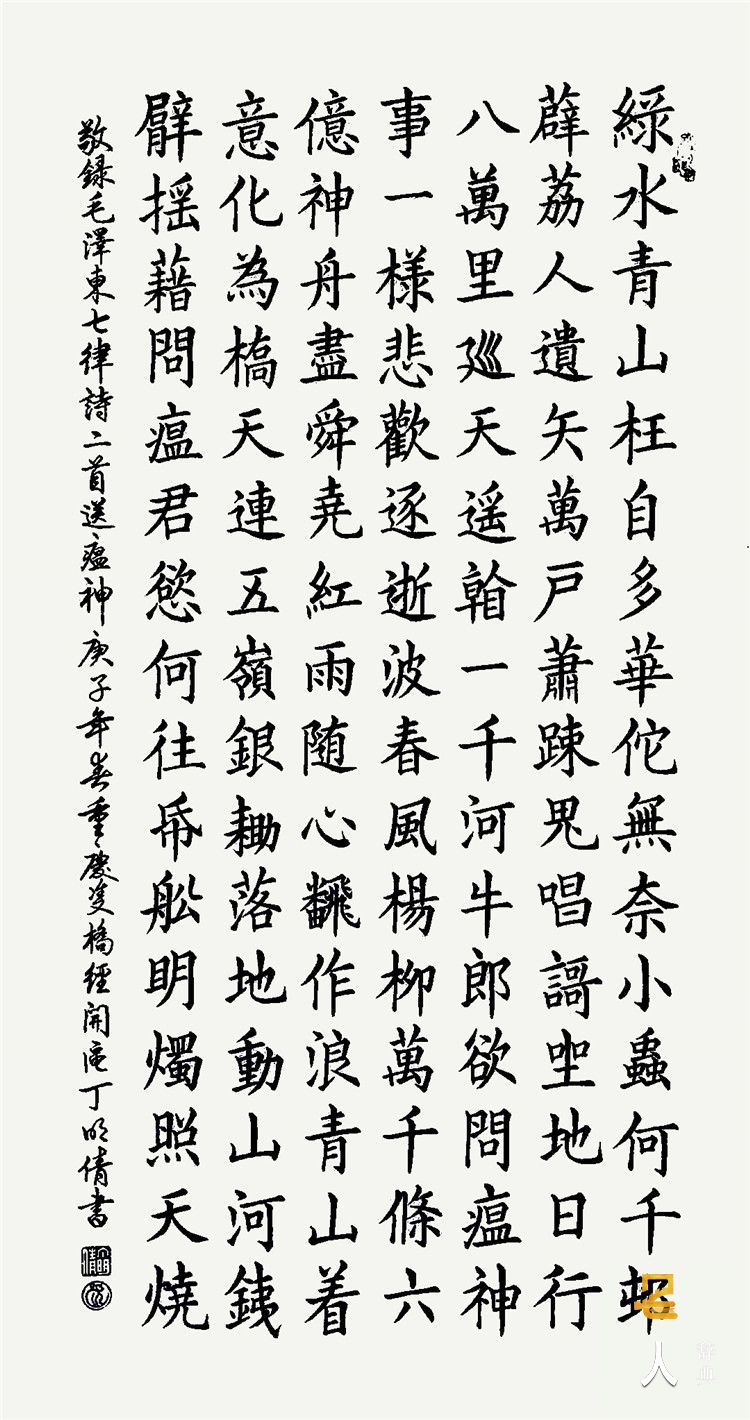 綠水青山枉自多華佗無奈小蟲何千邨
薜荔人遺矢萬戶蕭踈鬼唱謌坐地日行
八萬里巡天遥看一千河牛郎欲問瘟神
事一樣悲歡逐逝波春風楊柳萬千條六
億神舟盡舜尭紅雨随心飜作浪青山着
意化為橋天連五嶺銀耡落地動山河銕
臂揺藉問瘟君慾何往帋舩明燭照天燒
敬録毛澤東七律詩二首送瘟神庚子年春重慶雙橋經開區丁明倩書
名人
辞典